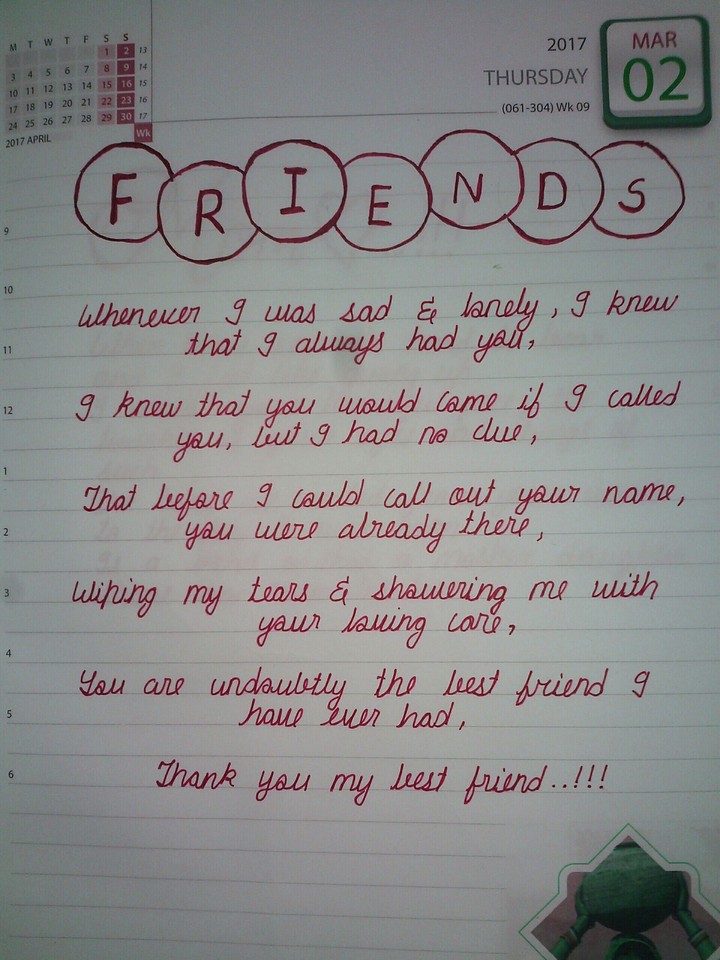 M T W T F S S
1 2 13
3 4 5 6 7 8 9 14
10 11 12 13 14 15 16 15
17 18 19 20 21 22 23 16
24 25 26 27 28 29 30 17
2017 APRIL Wk
2017
THURSDAY
(061-304) Wk 09
MAR
02
FRIENDS
9
10
Whenever I was sad & lonely, I knew
11
that I always had you,
12
I knew that you would come if I called
you, but I had no clue,
1
That before I could call out your name,
2
you were already there,
3
Wiping my tears & showering me with
your loving care,
4
You are undoubtly the best friend I
5
have ever had,
6
Thank you my best friend..!!!